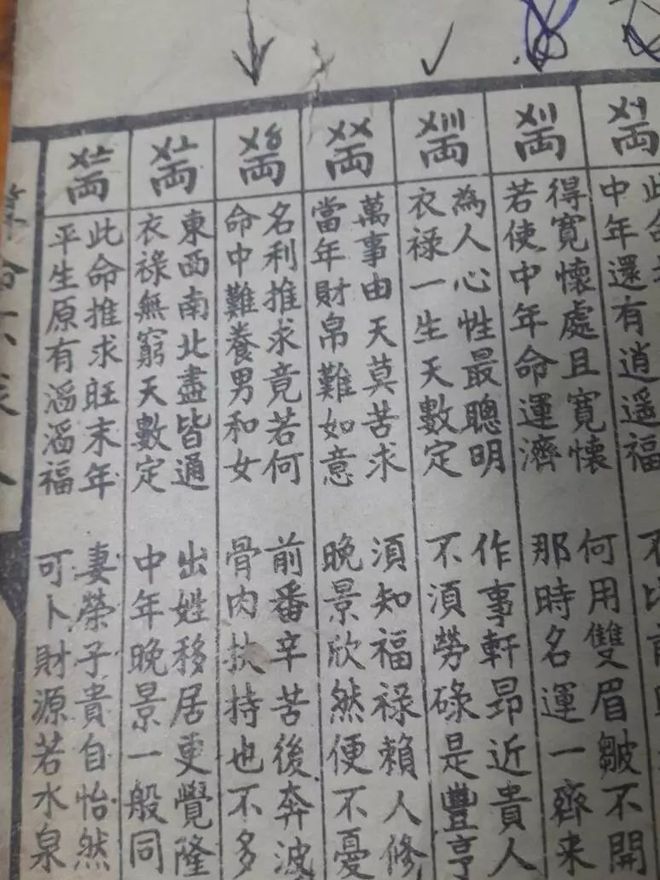 〤〡両
中年還有逍遥福
〤〢両
得寬懷處且寬懷 何用雙眉皺不開
若使中年命運濟 那時名運一齊来
〤〣両
為人心性最聰明 作事軒昂近貴人
衣禄一生天數定 不須勞碌是豐亨
〤〤両
萬事由天莫苦求 須知福禄賴人修
當年財帛難如意 晚景欣然便不憂
〤〥両
名利推求竟若何 前番辛苦後奔波
命中難養男和女 骨肉扶持也不多
〤〦両
東西南北盡皆通 出姓移居更覺隆
衣祿無窮天數定 中年晚景一般同
〤〧両
此命推求旺末年 妻榮子貴自怡然
平生原有滔滔福 可卜財源若水泉